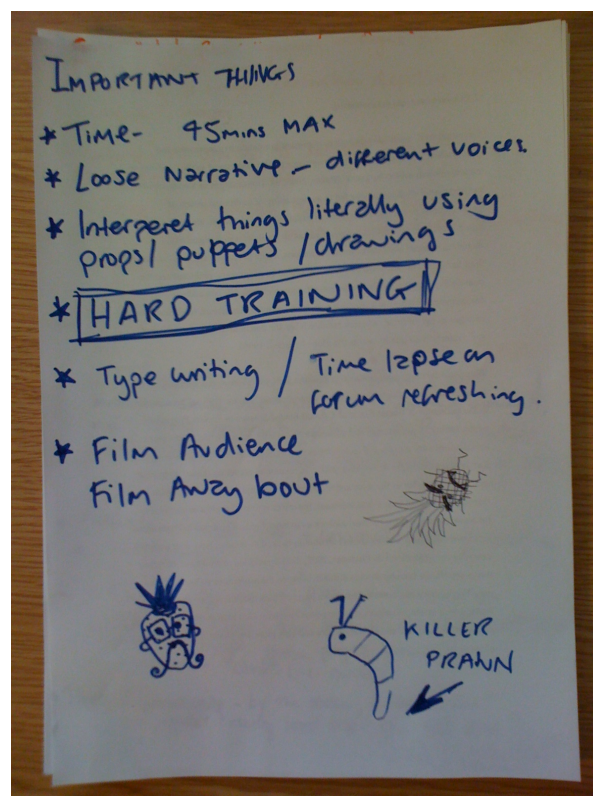 IMPORTANT THINGS
* TIME- 45MINS MAX
* LOOSE NARRATIVE - different voices.
* Interperet things literally using
props/ puppets / drawings
* HARD TRAINING
* Type writing / Time lapse on
forum refreshing.
* Film Audience
Film Away bout
KILLER
PRAWN